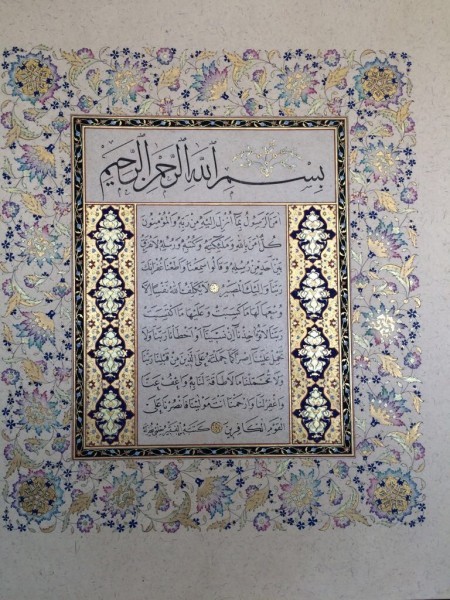 بِسْمِ ٱللَّهِ ٱلرَّحْمٰنِ ٱلرَّحِيمِ
اٰمَنَ الرَّسُولُ بِمَٓا اُنْزِلَ اِلَيْهِ مِنْ رَبِّهِ وَالْمُؤْمِنُونَ
كُلٌّ اٰمَنَ بِاللّٰهِ وَمَلٰٓئِكَتِهِ وَكُتُبِهِ وَرُسُلِهِ لَا نُفَرِّقُ
بَيْنَ اَحَدٍ مِنْ رُسُلِهِ وَقَالُوا سَمِعْنَا وَاَطَعْنَا غُفْرَانَكَ
رَبَّنَا وَاِلَيْكَ الْمَصِيرُ لَا يُكَلِّفُ اللّٰهُ نَفْسًا اِلَّا
وُسْعَهَا لَهَا مَا كَسَبَتْ وَعَلَيْهَا مَا اكْتَسَبَتْ
رَبَّنَا لَا تُؤَاخِذْنَٓا اِنْ نَسِينَٓا اَوْ اَخْطَاْنَا رَبَّنَا وَلَا
تَحْمِلْ عَلَيْنَٓا اِصْرًا كَمَا حَمَلْتَهُ عَلَى الَّذِينَ مِنْ قَبْلِنَا رَبَّنَا
وَلَا تُحَمِّلْنَا مَا لَا طَاقَةَ لَنَا بِهِ وَاعْفُ عَنَّا
وَاغْفِرْ لَنَا وَارْحَمْنَا اَنْتَ مَوْلٰينَا فَانْصُرْنَا عَلَى
الْقَوْمِ الْكَافِرِينَ كَتَبَهُ